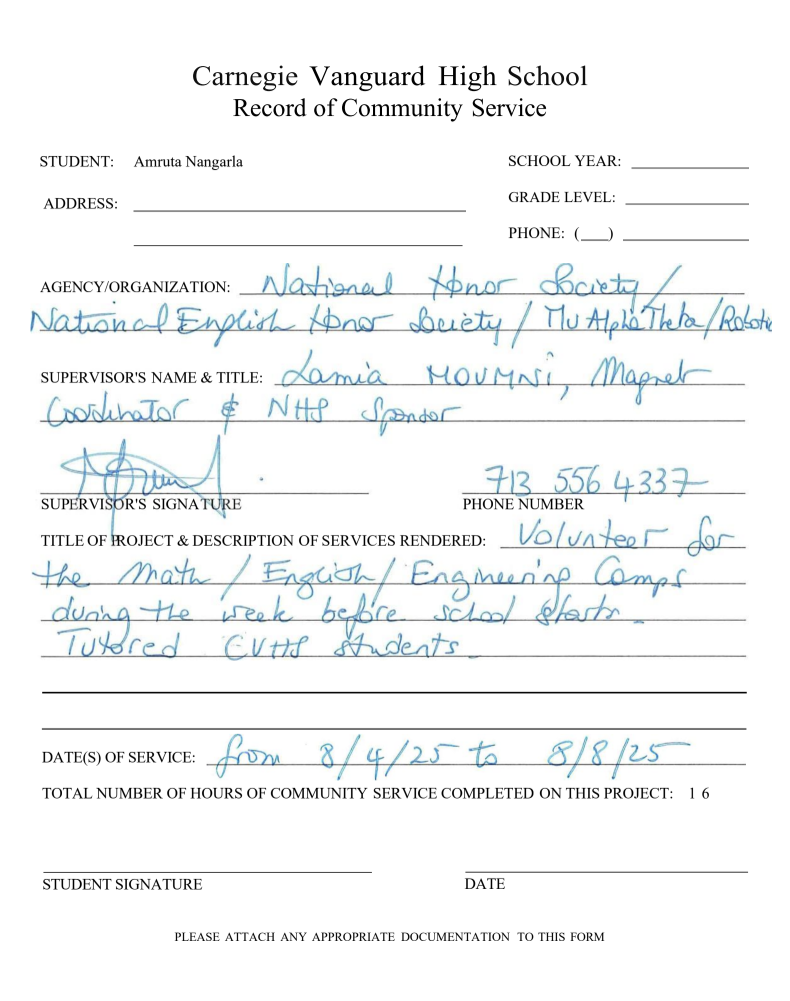 Carnegie Vanguard High School
Record of Community Service
STUDENT: Amruta Nangarla
SCHOOL YEAR:
ADDRESS:
GRADE LEVEL:
PHONE: (___)
AGENCY/ORGANIZATION: National Honor Society/
National English Honor Society/ Mu Alpha Theta/Robotic
SUPERVISOR'S NAME & TITLE: Lamia MOUMNI, Magnet
Coordinator & NHS Sponsor
713 556 4337
SUPERVISOR'S SIGNATURE PHONE NUMBER
TITLE OF PROJECT & DESCRIPTION OF SERVICES RENDERED: Volunteer for
the Math / English/ Engineering Camps
during the week before school starts.
Tutored CVHS students.
DATE(S) OF SERVICE: from 8/4/25 to 8/8/25
TOTAL NUMBER OF HOURS OF COMMUNITY SERVICE COMPLETED ON THIS PROJECT: 1 6
STUDENT SIGNATURE DATE
PLEASE ATTACH ANY APPROPRIATE DOCUMENTATION TO THIS FORM